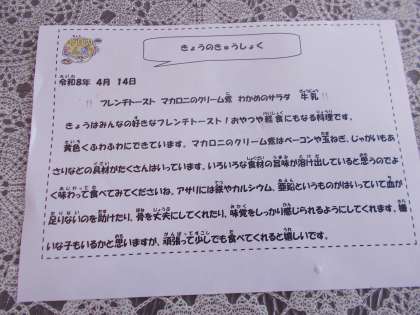 きょうのきゅうしょく
令和8年 4月 14日
!! フレンチトースト マカロニのクリーム煮 わかめのサラダ 牛乳 !!
きょうはみんなの好きなフレンチトースト!おやつや軽食にもなる料理です。
黄色くふわふわにできています。マカロニのクリーム煮はベーコンや玉ねぎ、じゃがいもあ
さりなどの具材がたくさんはいっています。いろいろな食材の旨味が溶け出していると思うのでよ
く味わって食べてみてくださいね。アサリには鉄やカルシウム、亜鉛というものがはいっていて血が
足りないのを助けたり、骨を丈夫にしてくれたり、味覚をしっかり感じられるようにしてくれます。嫌
いな子もいるかと思いますが、頑張って少しでも食べてくれると嬉しいです。